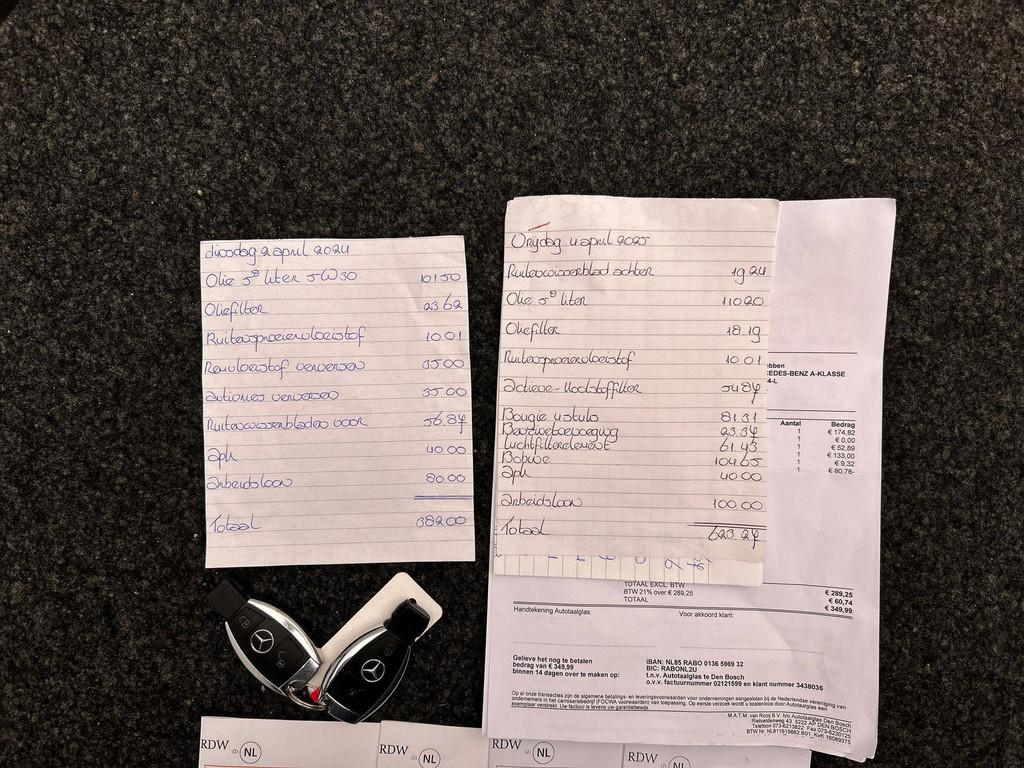 dinsdag 2 april 2024
Olie 5⁸ liter 5W30 101.50
Oliefilter 23.62
Ruitensproeiervloeistof 10.01
Remvloeistof verversen 35.00
Ruitenwisserbladen voor 56.87
apk 40.00
arbeidsloon 80.00
Totaal 382.00
Vrijdag 4 april 2025
Ruitenwisserblad achter 19.24
Olie 5⁸ liter 110.20
Oliefilter 18.19
Ruitensproeiervloeistof 10.01
actieve-koolstoffilter 54.87
Bougie 4 stuks 81.31
23.37
Luchtfilterelement 61.43
Bobine 104.65
apk 40.00
arbeidsloon 100.00
Totaal 623.27
ebben
CEDES-BENZ A-KLASSE
4-L
Aantal Bedrag
1 € 174,82
1 € 0,00
1 € 52,89
1 € 133,00
1 € 9,32
1 € 80,78-
TOTAAL EXCL. BTW € 289,25
BTW 21% over € 289,25 € 60,74
TOTAAL € 349,99
Handtekening Autotaalglas: Voor akkoord klant:
Gelieve het nog te betalen
bedrag van € 349,99
binnen 14 dagen over te maken op:
IBAN: NL85 RABO 0136 5969 32
BIC: RABONL2U
t.n.v. Autotaalglas te Den Bosch
o.v.v. factuurnummer 02121599 en klant nummer 3438036
Op al onze transacties zijn de algemene betalings- en leveringsvoorwaarden voor ondernemingen aangesloten bij de Nederlandse vereniging van
ondernemers in het carrosseriebedrijf (FOCWA voorwaarden) van toepassing. Op eerste verzoek wordt u kosteloos door Autotaalglas een
exemplaar verstrekt. Uw factuur is tevens uw garantiebewijs
M.A.T.M. van Rooij B.V. h/o Autotaalglas Den Bosch
Rietveldenweg 43 5222 AP DEN BOSCH
Telefoon 073-6213822 Fax 073-6230125
BTW Nr. NL811615662.B01 KvK 16089375
RDW (2) NL
RDW (2) NL
RDW (2) NL
RDW (2) NL